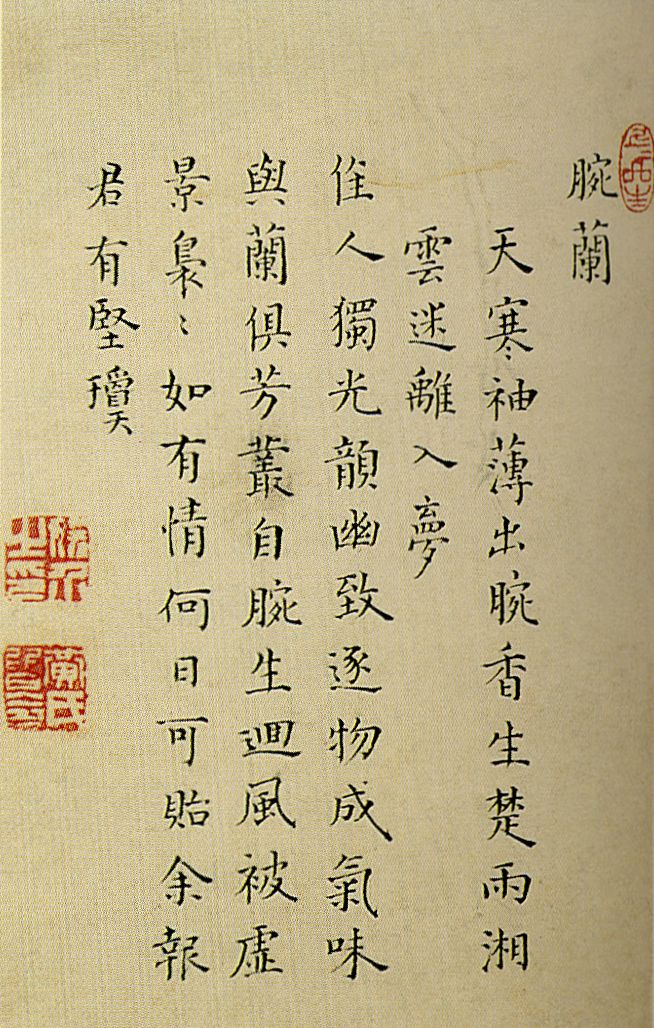 腕蘭
天寒袖薄出腕香生楚雨湘
雲迷離入夢
佳人獨光韻幽致逐物成氣味
與蘭俱芳叢自腕生迴風被虛
景裊〻如有情何日可貽余報
君有堅瓊